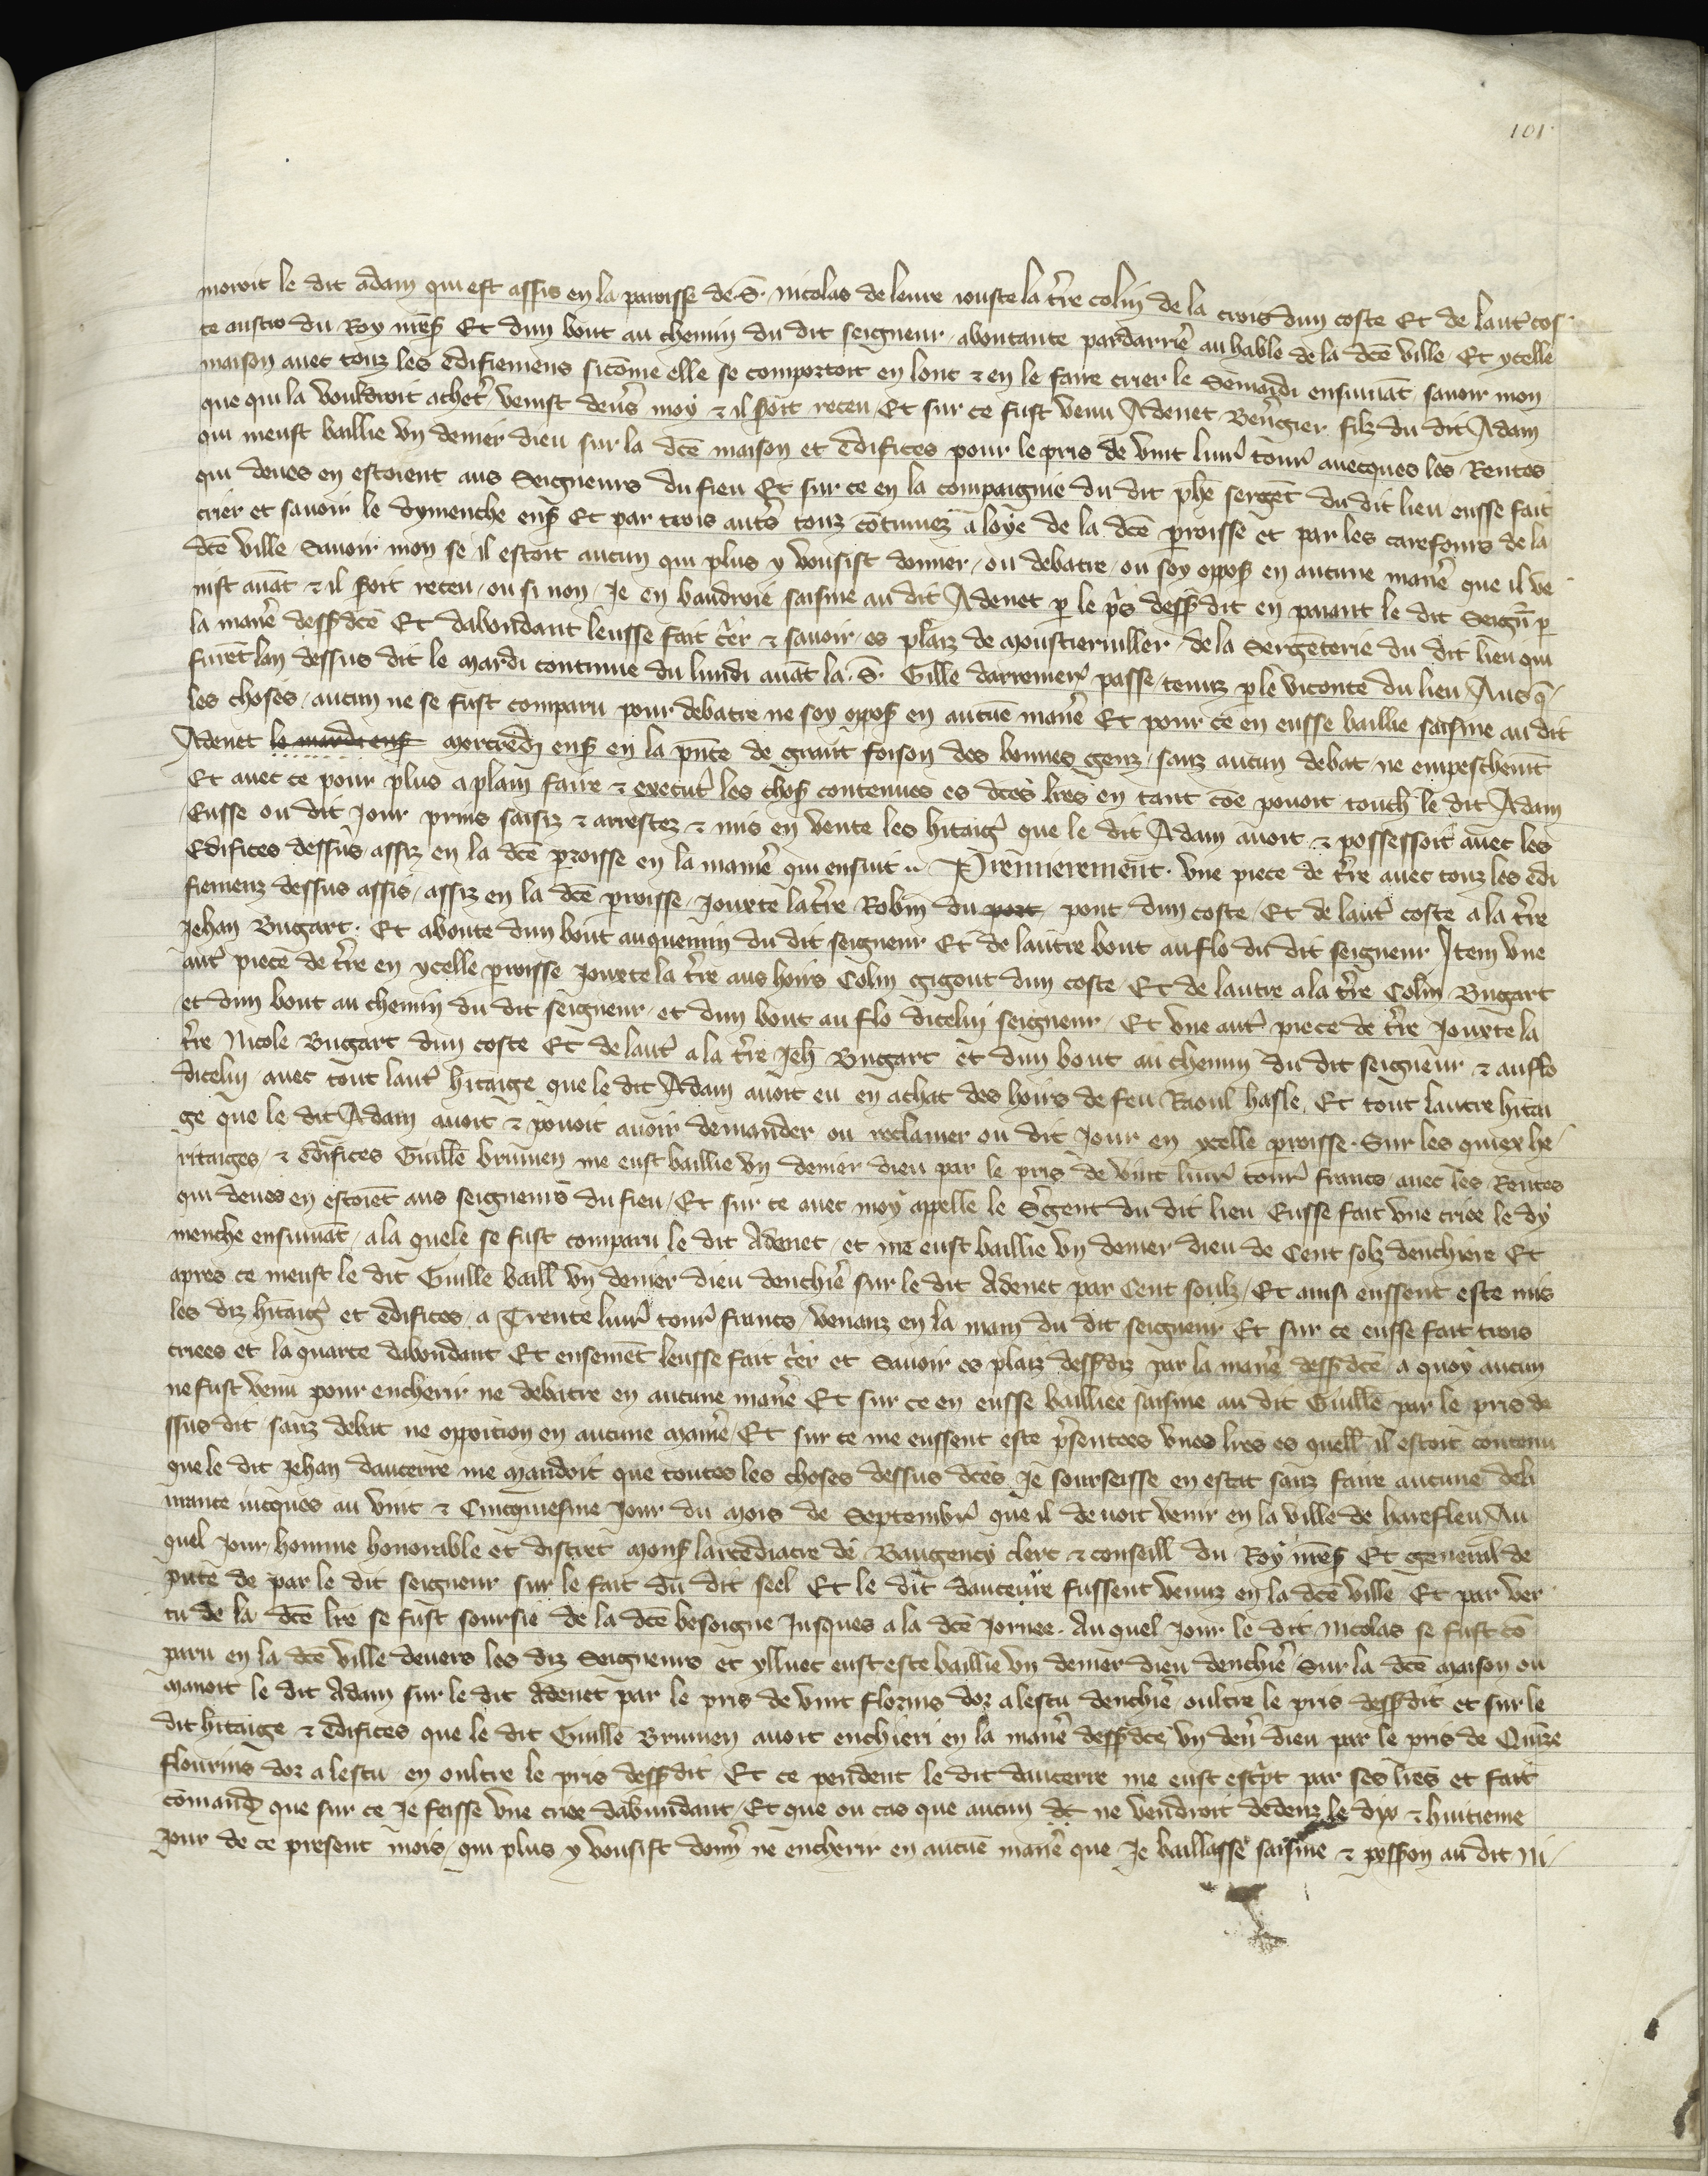 101
moroit le dit adam qui est assis en la paroisse de .S. nicolas de leure iouste la t̃re colin de la crois dun coste Et de laut̾ cos
te austro du Roy nr̃es̾ Et dun bout au chemin du dit seigneur aboutante pardarrie᷑ au hable de la dc̃e ville Et ycelle
maison auec touz les edifiemens sicõme elle se comportoit en lont ⁊ en le faire crier le Semardi ensuiuãt sauoir mon
que qui la vouldroit achet̾ venist deũs moy ⁊ il s̾oit receu Et sur ce fust venu Adenet Ben̾gier filz du dit Adam
qui meust baillie vn denier dieu sur la dc̃e maison et edifices pour le pris de vint liur̾ tour̾ auecques les Rentes
qui deues en estoient aus Seigneurs du fieu Et sur ce en la compaignie du dit ph̃e serg̃et du dit lieu eusse fait
crier et sauoir le dymenche ens̾ Et par trois aut̾s touz cõtinuez a loye de la dc̃e p̱roisse et par les carefours de la
dc̃e ville Sauoir mon se il estoit aucun qui plus y vousist donner ou debatre ou soy oppos̾ en aucune manie᷑ que il ve
nist auãt ⁊ il s̾oit receu ou si non Je en baudroie saisine au dit Adenet p̱ le p̾s dess̾dit en paiant le dit Seign̾ p̱
la mane᷑ dess̾dc̃e Et dabondant leusse fait c̾er ⁊ sauoir es plaiz de moustieruiller de la Sergẽterie du dit lieu qui
furẽt lan dessus dit le mardi continue du lundi auãt la .S. Gille darremer̾ passe tenuz p̱ le viconte du lieu Aus q̃
les choses aucun ne se fust comparu pour debatre ne soy oppos̾ en aucũe mane᷑ Et pour ce en eusse baillie saisine au dit
Adenet le mardi ens̾ mercredi ens̾ en la pñce de grant foison des bonnes genz sanz aucun debat ne empeschemt̃
Et auec ce pour plus a plain faire ⁊ execut̾ les chos̾ contenues es dc̃es lr̃es en tant cõe pouoit touch̾ le dit Adam
Eusse ou dit Jour prins saisiz ⁊ arrestez ⁊ mis en vente les hitaig̾ que le dit Adam auoit ⁊ possessoit auec les
Edifices dessus assiz en la dc̃e p̱roisse en la manie᷑ qui ensuit Premierement. Vne piece de t̃re auec touz les edi
fiemenz dessus assis assiz en la dc̃e p̱roisse Jouxte la t̃re Robin du port pont dun coste Et de laut̾ coste a la t̃re
Jehan Bugart. Et aboute dun bout au quemin du dit seigneur Et de lautre bout au flo du dit seigneur Item vne
aut̾ piece de t̃re en ycelle p̱roisse Jouxte la t̃re aus hoirs Colin gigout dun coste Et de lautre a la t̃re Colin Bugart
et dun bout au chemin du dit seigneur et dun bout au flo dicelui seigneur Et vne aut̾ piece de t̃re Jouxte la
t̃re Nicole Bugart dun coste Et de laut̾ a la t̃re Jeh̃ Bugart et dun bout au chemin du dit seigneur ⁊ au flo
dicelui auec tout laut̾ hitaige que le dit Adam auoit eu en achat des hoirs de feu Raoul hasle Et tout lautre hitai
ge que le dit Adam auoit ⁊ pouoit auoir demander ou reclamer ou dit Jour en ycelle p̱roisse. Sur les quiex he
ritaiges ⁊ edifices Guille᷑ brumen me eust baillie vn denier dieu par le pris de vint liur̾ tour̾ francs auec les Rentes
qui deues en estoiẽt aus seigneurs du fieu Et sur ce auec moy appelle le S̾gent du dit lieu Eusse fait vne criee le dy
menche ensuiuãt a la quele se fust comparu le dit Adenet et me eust baillie vn denier dieu de Cent solz denchiere Et
apres ce meust le dit Guille baill̾ vn denier dieu denchie᷑ sur le dit Adenet par Cent soulz Et ainsi eussent este mis
les diz hitaig̾ et edifices a Trente liur̾ tour̾ francs venanz en la main du dit seigneur Et sur ce eusse fait trois
criees et la quarte dabondant Et ensemẽt leusse fait c̾er et Sauoir es plaiz dess̾diz par la mane᷑ dess̾dc̃e a quoy aucun
ne fust venu pour encherir ne debatre en aucune mane᷑ Et sur ce en eusse bailliee saisine au dit Guille᷑ par le pris de
ssus dit sanz debat ne opoicion en aucune manie᷑ Et sur ce me eussent este p̾sentees vnes lr̃es es quell̾ il estoit contenu
que le dit Jehan daucerre me mandoit que toutes les choses dessus dc̃es Je sourseisse en estat sanz faire aucune deli
urance iucques au vint ⁊ Cincquiesme Jour du mois de Septembr̾ que il deuoit venir en la ville de harefleu Au
quel Jour homme honorable et discret mons̾ larcediacre de Baugency clerc ⁊ conseill̾ du Roy nr̃es̾ Et general de
pute de par le dit seigneur sur le fait du dit seel Et le dit daucerre fussent venuz en la dc̃e ville Et par ver
tu de la dc̃e lr̃e se fust soursie de la dc̃e besoigne Jusques a la dc̃e Jornee. Au quel Jour le dit Nicolas se fust cõ
paru en la dc̃e ville deuers les diz Seigneurs et ylluec eust este baillie vn denier dieu denchie᷑ Sur la dc̃e maison ou
manoit le dit Adam sur le dit Adenet par le pris de vint florins dor a lescu denchie᷑ oultre le pris dess̾dit et sur le
dit hitaige ⁊ edifices que le dit Guille᷑ Brumen auoit enchieri en la mane᷑ dess̾dc̃e vn den̾ dieu par le pris de Quĩze
flourins dor a lescu en oultre le pris dess̾dit Et ce pendent le dit daucerre me eust esc̾pt par ses lr̃es et fait
comand̾ que sur ce Je feisse vne criee dabundant Et que ou cas que aucun ne vendroit dedenz le dix ⁊ huitieme
Jour de ce present mois qui plus y vousist donn̾ ne encherir en aucũe mane᷑ que Je baillasse saisine ⁊ poss̾on au dit Ni